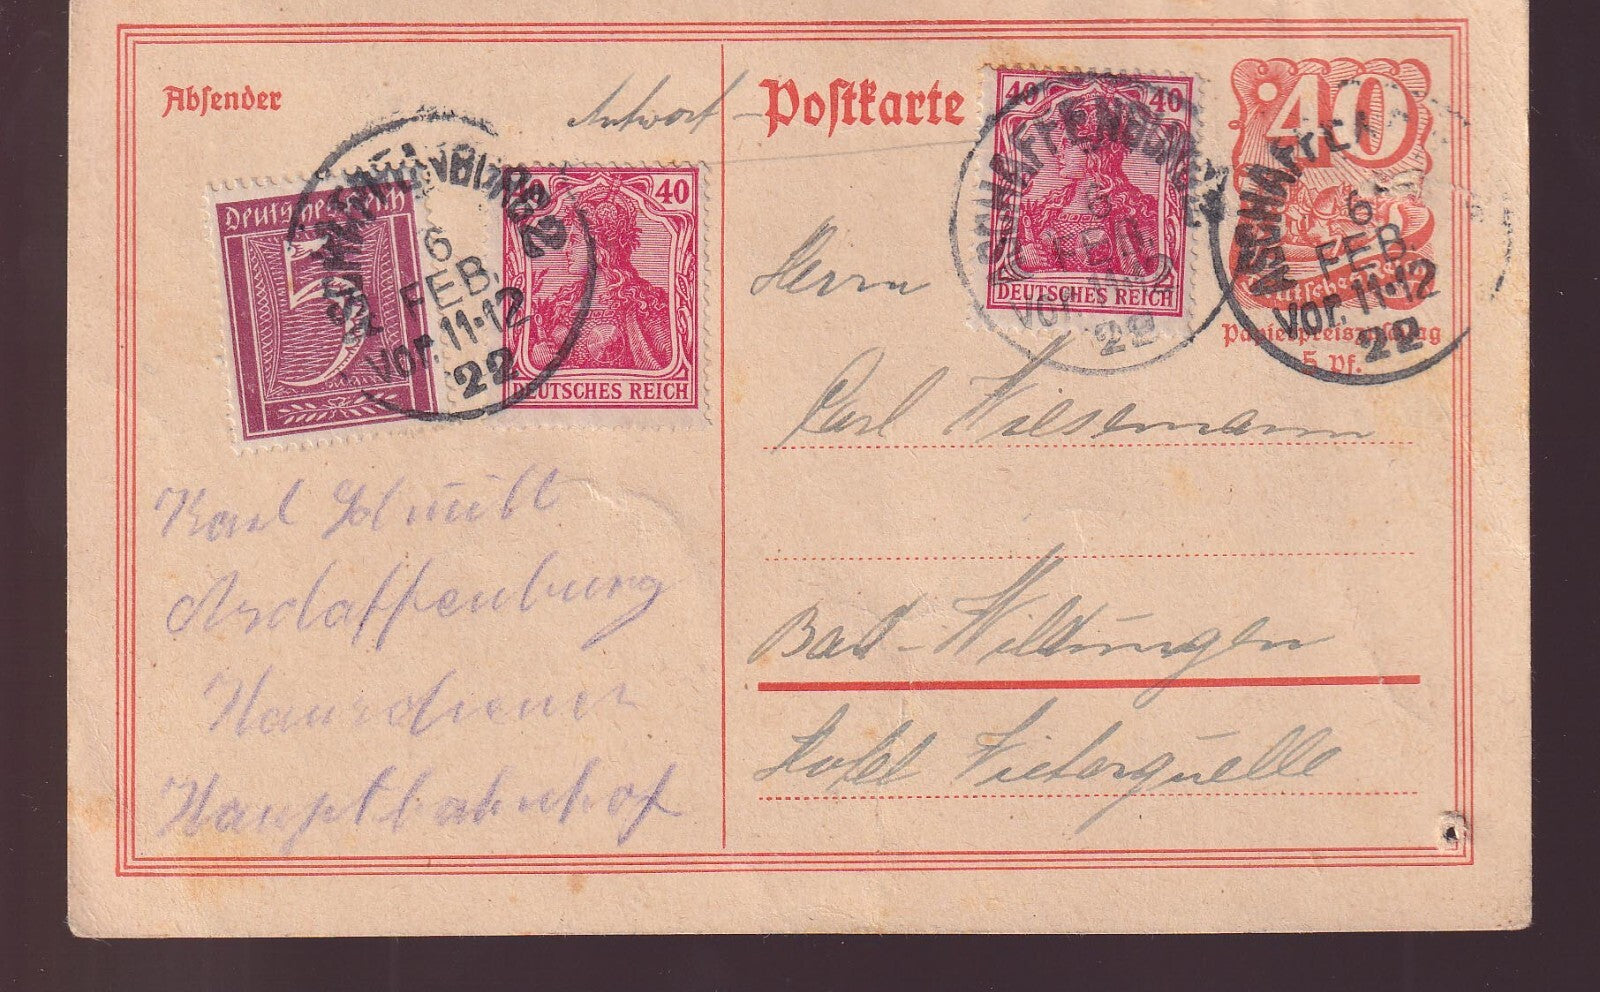 Absender
Antwort
Postkarte
40
Deutsches Reich
Papierpreiszuschlag
5 Pf.
40 40
DEUTSCHES REICH
ASCHAFFENBURG 2
6
FEB.
Vor. 11-12
22
ASCHAFFEN
6
FEB.
Vor. 11-12
22
Deutsches Reich
5
40
DEUTSCHES REICH
ASCHAFFENBURG 2
6
FEB.
Vor. 11-12
22
Herrn
Carl Wiesemann
Bad-Wildungen
Hotel Victorquelle
Karl Schmitt
Aschaffenburg
Hausdiener
Hauptbahnhof